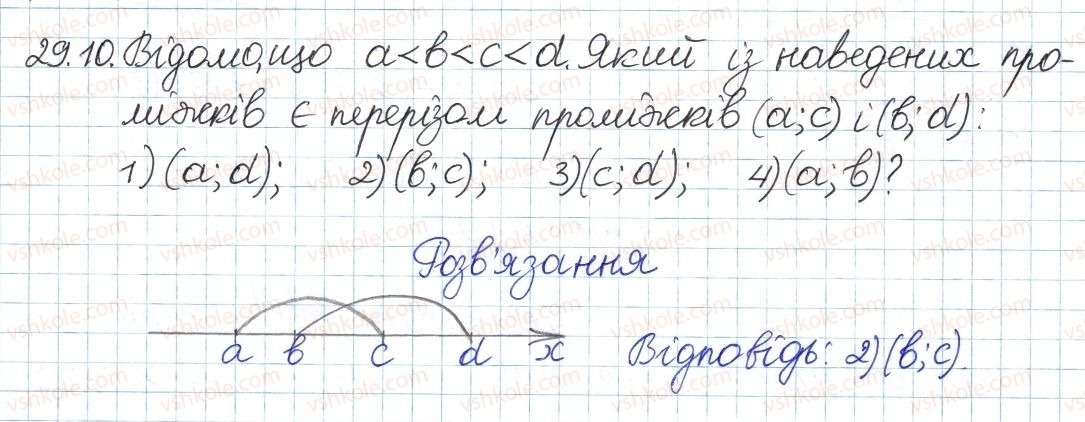 29.10. Відомо,що a<в<c<d. Який із наведених про-
міжків є перерізом проміжків (a;c) і (в;d):
1)(a;d); 2)(в;c); 3)(c;d); 4)(a;в)?
Розв'язання
a в c d x
Відповідь: 2)(в;c).